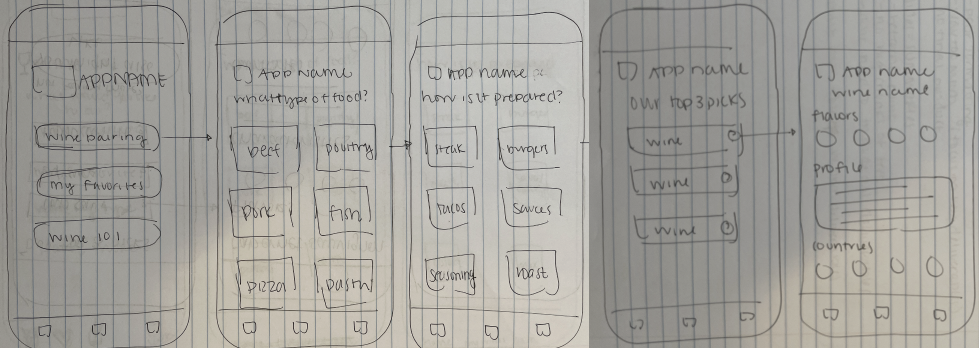 APPNAME
wine pairing
my favorites
wine 101
APP name
what type of food?
beef
poultry
pork
fish
pizza
pasta
APP name
how is it prepared?
steak
burgers
tacos
sauces
seasoning
roast
APP name
our top 3 picks
wine
wine
wine
APP name
wine name
flavors
profile
countries